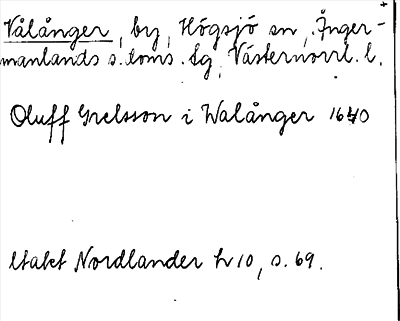 Vålånger, by, Högsjö sn, Ånger-
manlands s. doms. tg, Västernorrl. l.
Oluff Grelsson i Walånger 1640
Utakt Nordlander h 10, s. 69.